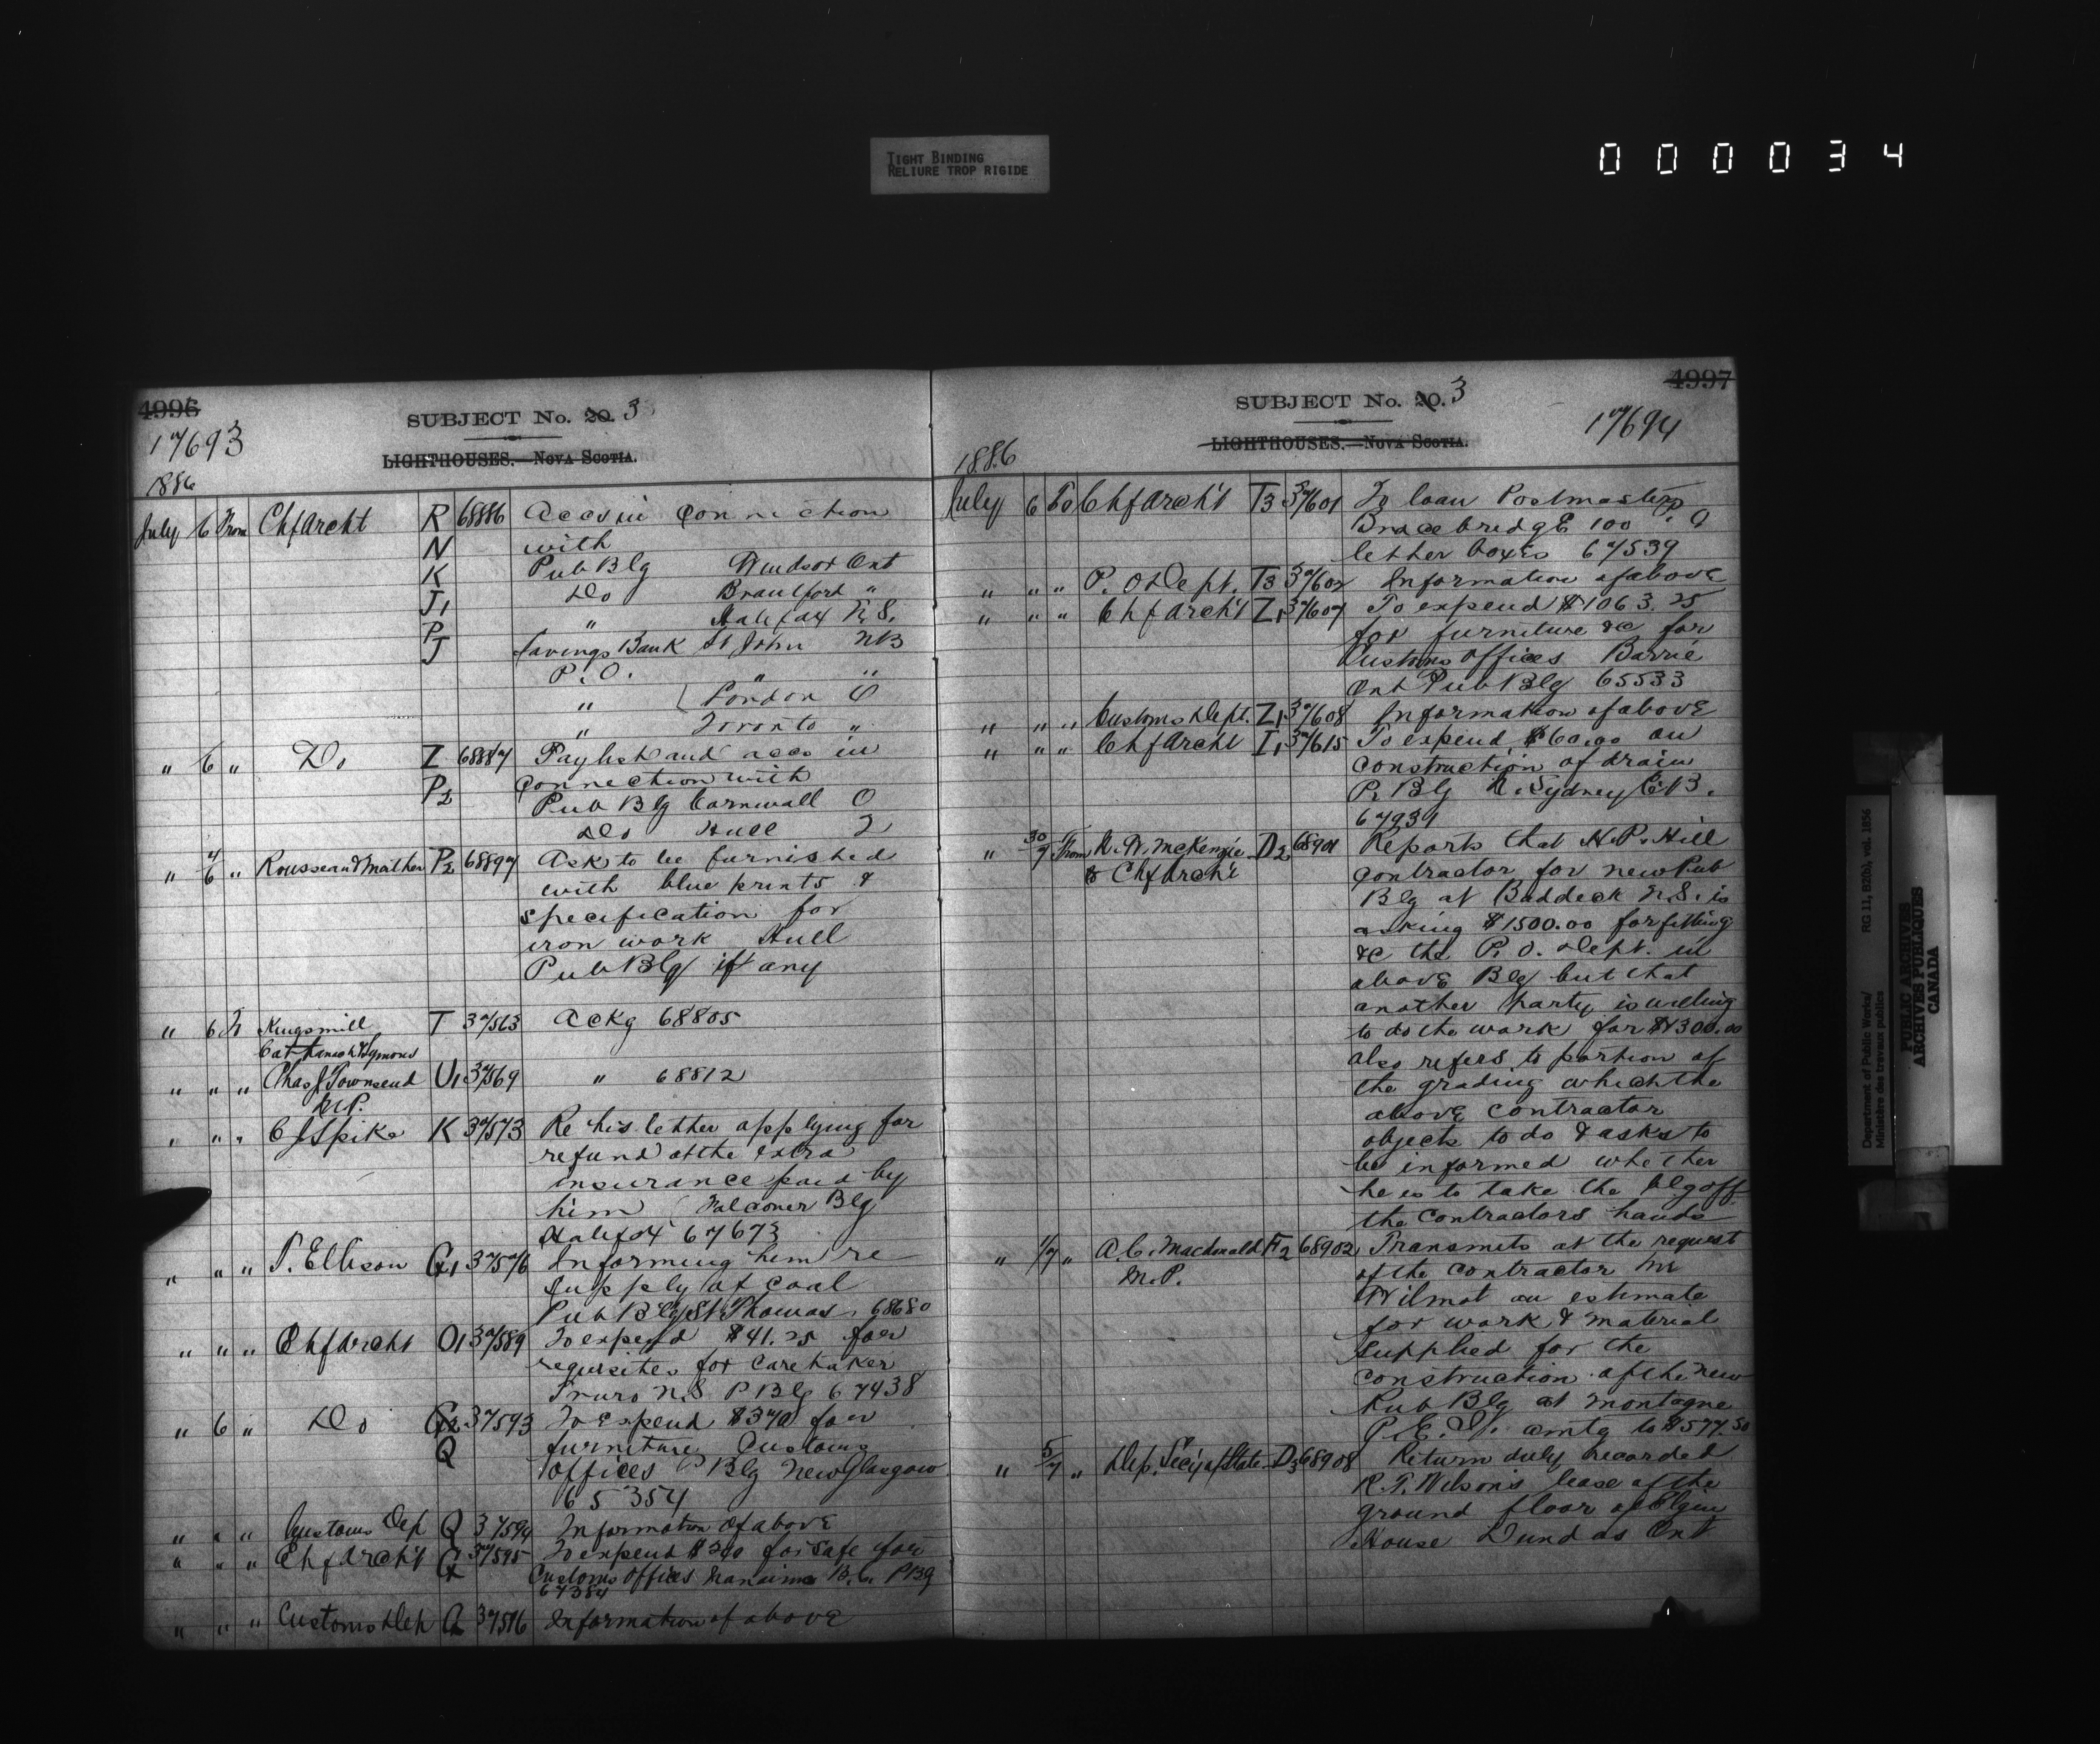 TIGHT BINDING
RELIURE TROP RIGIDE
000034
4996
SUBJECT No. 20. 3
17693
LIGHTHOUSES.—NOVA SCOTIA.
1886
July 6 From Chf Archt R 68886 Accs in connection
N with
K Pub Blg Windsor Ont
J1 Do Brantford "
P " Halifax N.S.
J Savings Bank St John NB
P.O. " "
" London O
" Toronto "
" 6 " Do I 68887 Paylist and accs in
P2 connection with
Pub Blg Cornwall O
Do Hull Q
" 4/6 " Rousseau & Mather P2 68897 Ask to be furnished
with blue prints &
specification for
iron work Hull
Pub Blg if any
" 6 To Kingsmill T 37563 Ackg 68805
Cattanach & Symons
" " " Chas J Townsend U1 37569 " 68812
M.P.
" " " C J Spike K 37573 Re his letter applying for
refund of the extra
insurance paid by
him Falconer Blg
Halifax 67673
" " " P. Ellison G1 37576 Informing him re
supply of coal
Pub Blg St. Thomas. 68680
" " " Chf Archt O1 37589 To expend $41.25 for
requisites for caretaker
Truro N.S P Blg 67438
" 6 " Do G2 37593 To expend $370 for
Q furniture Customs
offices P Blg New Glasgow
65354
" " " Customs Dep Q 37594 Information of above
" " " Chf Archt G 37595 To expend $200 for safe for
Customs Offices Nanaimo B.C. P Bg
67384
" " " Customs Dep G 37596 Information of above
4997
SUBJECT No. 20. 3
17694
LIGHTHOUSES.—NOVA SCOTIA.
1886
July 6 To Chf Arch't T3 37601 To loan Postmaster
Bracebridge 100 P.O
letter boxes 67539
" " " P.O Dept. T3 37602 Information of above
" " " Chf Arch't Z1 37607 To expend $1063.25
for furniture &c for
Customs Offices Barrie
Ont Pub Blg 65533
" " " Customs Dept. Z1 37608 Information of above
" " " Chf Archt I1 37615 To expend $60.00 on
construction of drain
P. Blg N. Sydney C.B.
67931
" 30/7 From McKenzie D2 68901 Reports that H.P. Hill
to Chf Arch't contractor for new Pub
Blg at Baddeck N.S. is
asking $1500.00 for fitting
&c the P.O. Dept. in
above Blg but that
another party is willing
to do the work for $1300.00
also refers to portion of
the grading which the
above contractor
objects to do & asks to
be informed whether
he is to take the blg off
the contractors hands
" 1/7 " A.C. Macdonald F2 68902 Transmits at the request
M.P. of the contractor Mr
Wilmot an estimate
for work & material
supplied for the
construction of the new
Pub Blg at Montague
P.E.I. amtg to $577.50
" 5/7 " Dep. Sec'y of State D3 68908 Return duly recorded
R.T. Wilson's lease of the
ground floor of Elgin
House Dundas Ont
Department of Public Works/ RG 11, B2(b), vol. 1856
Ministère des travaux publics
PUBLIC ARCHIVES
ARCHIVES PUBLIQUES
CANADA